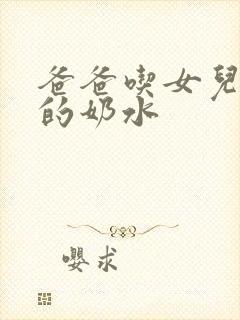 爸爸喫女兒
的奶水
嚶求